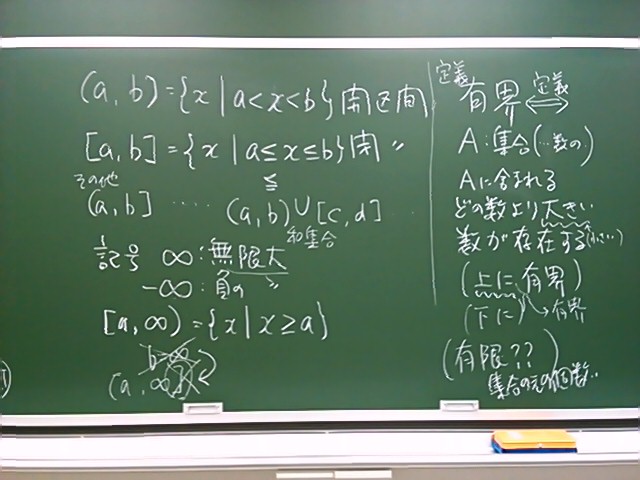 (a, b) = {x | a < x < b} 開区間
[a, b] = {x | a ≤ x ≤ b} 閉 〃
≦
その他
(a, b] ‥‥ (a, b) ∪ [c, d] ‥
和集合
記号 ∞ : 無限大
-∞ : 負の 〃
[a, ∞) = {x | x ≥ a}
(a, ∞
定義
有界 定義 ⟺
A : 集合 (‥数の)
Aに含まれる
どの数より大きい
数が存在する (小さい)
(上に有界)
(下に) → 有界
(有限??)
集合の元の個数‥